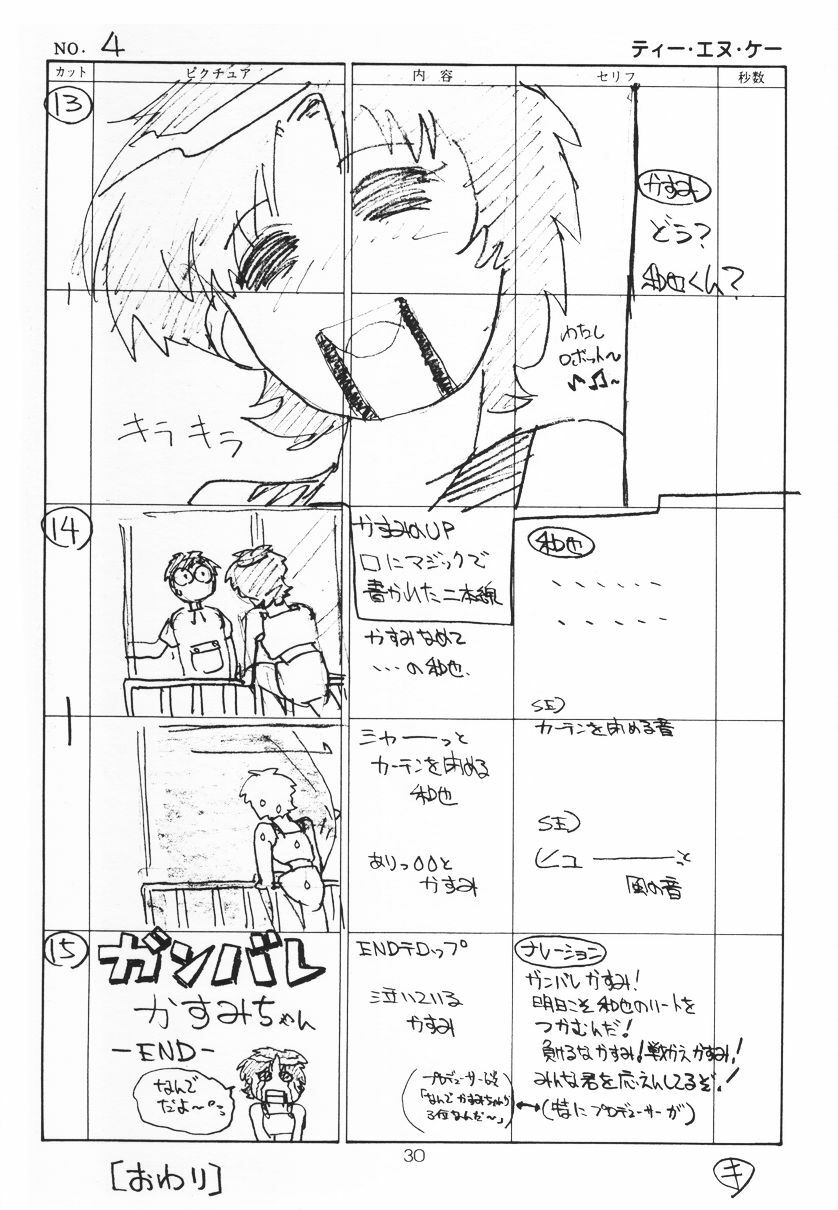 NO. 4
ティー・エヌ・ケー
カット
ピクチュア
内容
セリフ
秒数
13
かすみ
どう?
和也くん?
わたし
ロボット〜
♪♫〜
キラキラ
かすみのUP
口にマジックで
書かれた二本線
14
かすみなめて
・・・の和也.
和也
、、、、、、
、、、、、
SE)
カーテンを閉める音
シャーーっと
カーテンを閉める
和也
ありっ00と
かすみ
SE)
ヒューーーーっと
風の音
15
ガンバレ
かすみちゃん
-END-
なんで
だよ〜
ENDテロップ
泣いている
かすみ
「なんでかすみちゃんが
3位なんだ〜」
ナレーション
ガンバレかすみ!
明日こそ和也のハートを
つかむんだ!
負けるなかすみ!戦かえかすみ!
みんな君を応えんしてるぞ!
(特にプロデューサーが)
30
[おわり]
キ